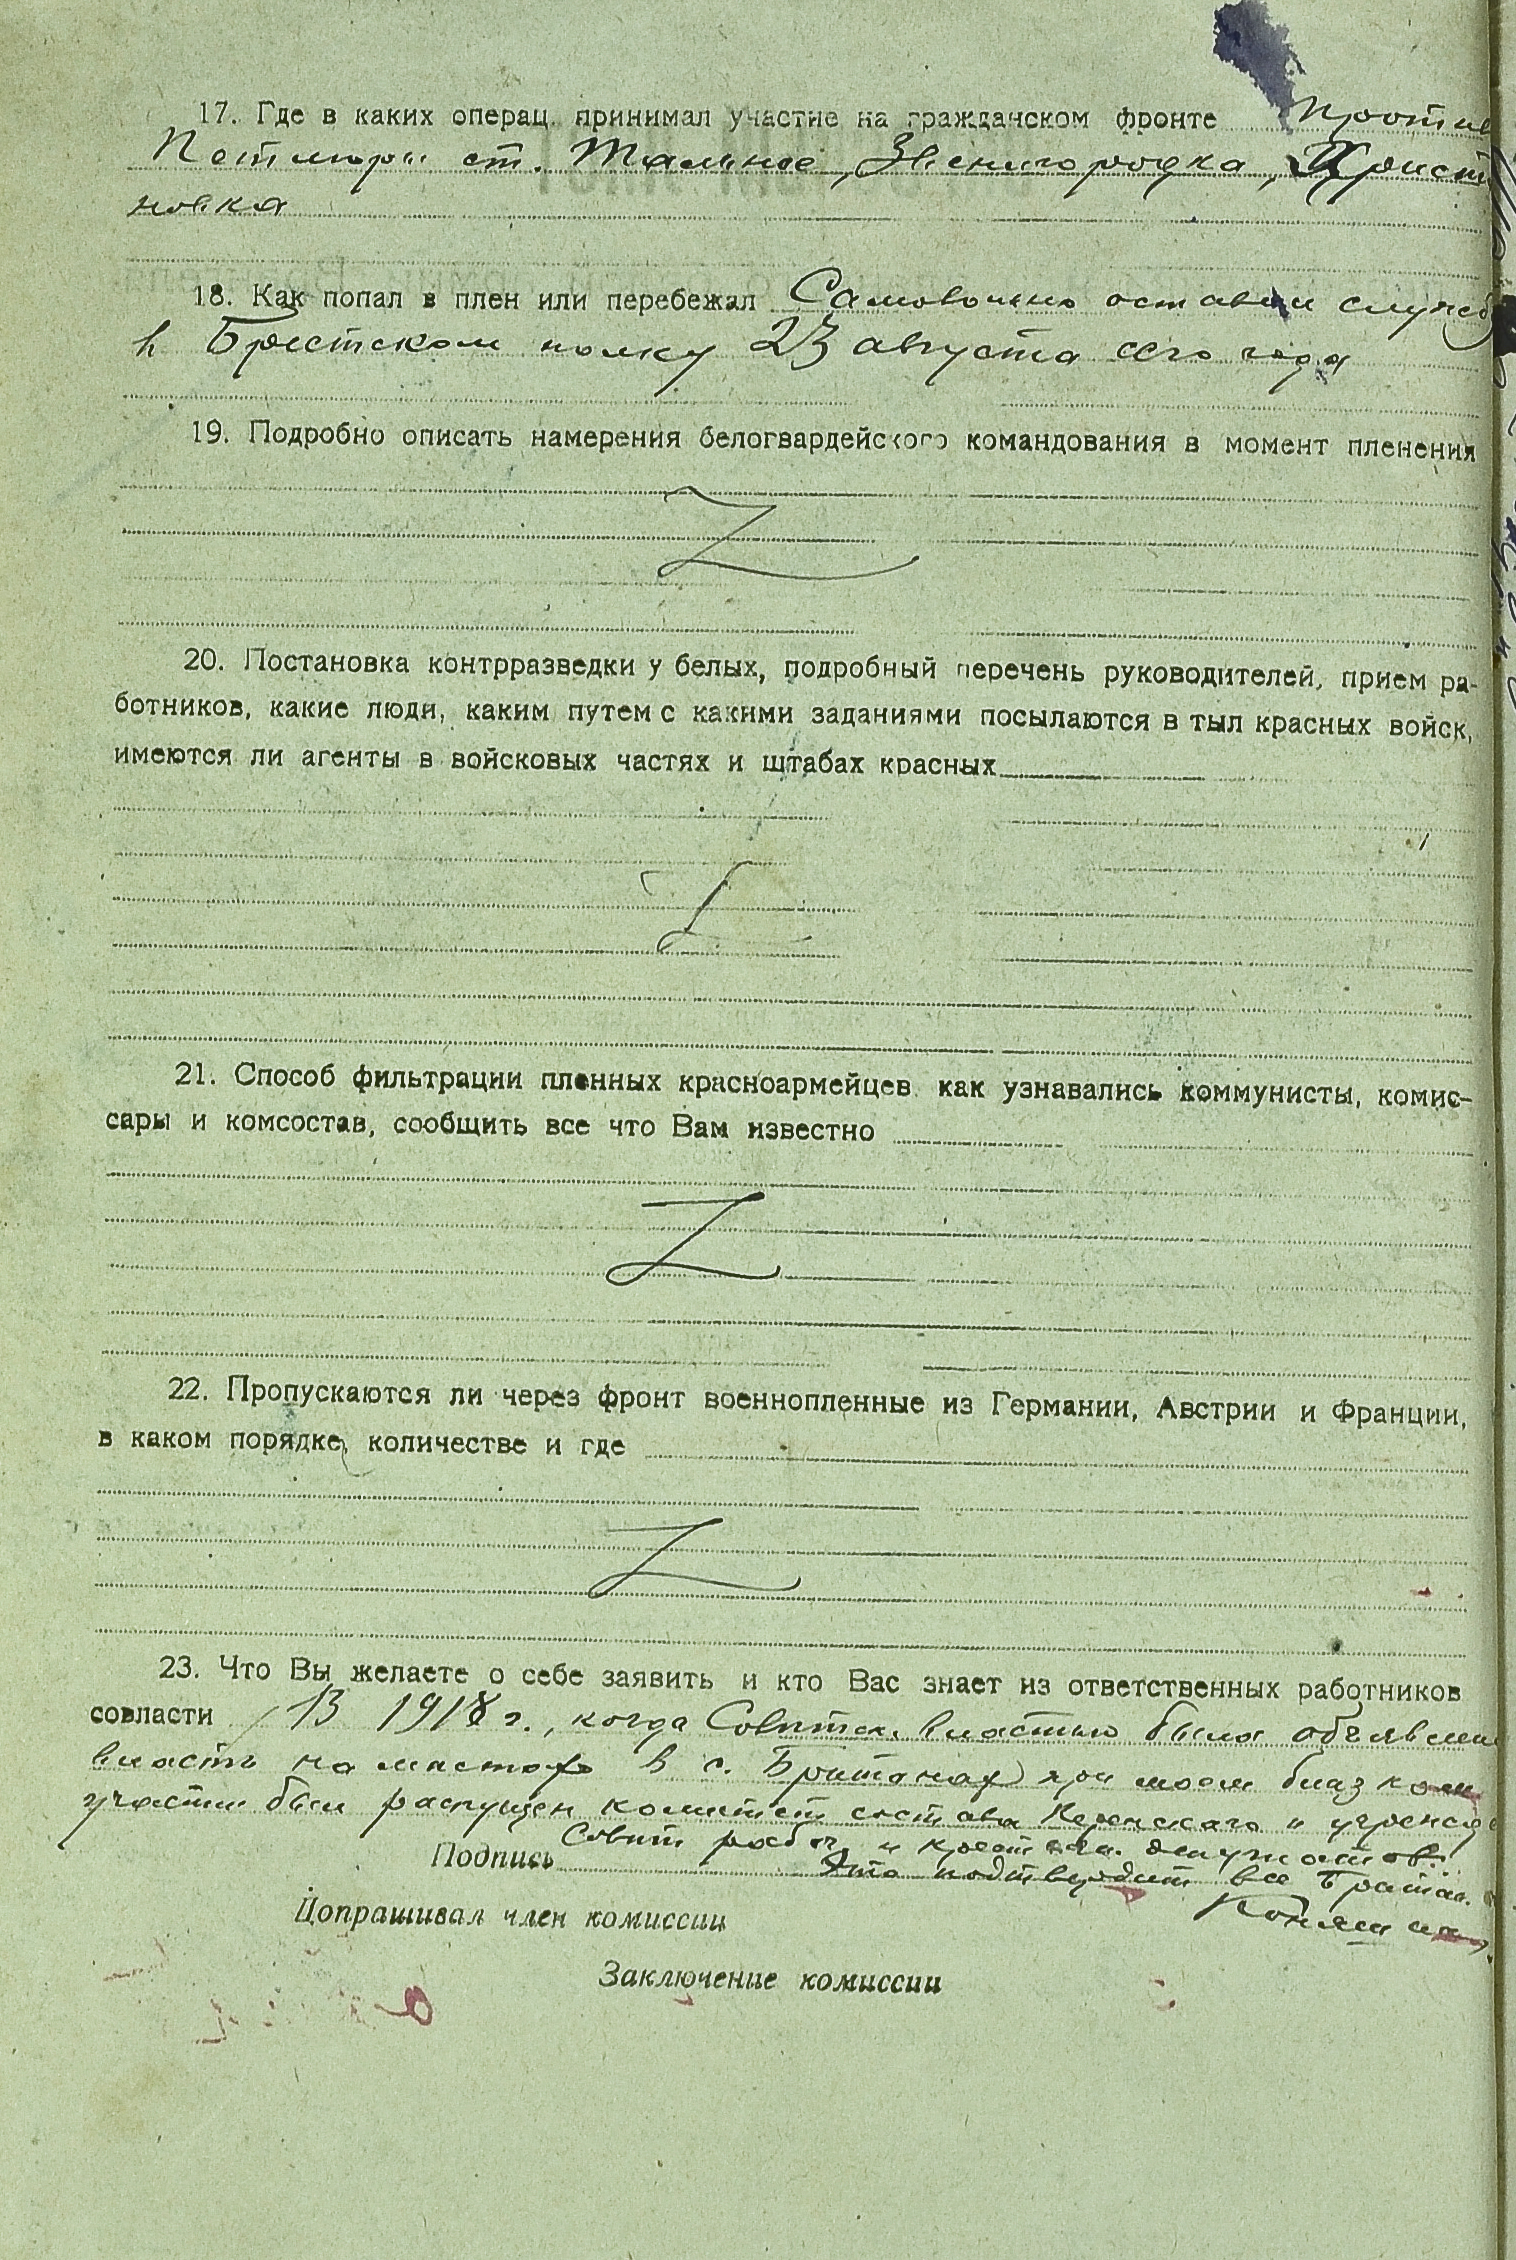 17. Где в каких операц. принимал участие на гражданском фронте против
Петлюры ст. Тальное, Звенигородка, Христи
новка
18. Как попал в плен или перебежал Самовольно оставил служб
в Брестском полку 23 августа сего года
19. Подробно описать намерения белогвардейского командования в момент пленения
20. Постановка контрразведки у белых, подробный перечень руководителей, прием ра-
ботников, какие люди, каким путем с какими заданиями посылаются в тыл красных войск,
имеются ли агенты в войсковых частях и штабах красных
21. Способ фильтрации пленных красноармейцев. как узнавались коммунисты, комис-
сары и комсостав, сообщить все что Вам известно
22. Пропускаются ли через фронт военнопленные из Германии, Австрии и Франции,
в каком порядке, количестве и где
23. Что Вы желаете о себе заявить и кто Вас знает из ответственных работников
совласти В 1918 г., когда Советск. властью была объявлена
власть на местах в с. Британах при моем близком
участии был распущен комитет состава Керенского и учрежде
Совет рабоч. и крестьян. депутатов.
Подпись Это подтвердит все Британ.
Допрашивал член комиссии
Заключение комиссии